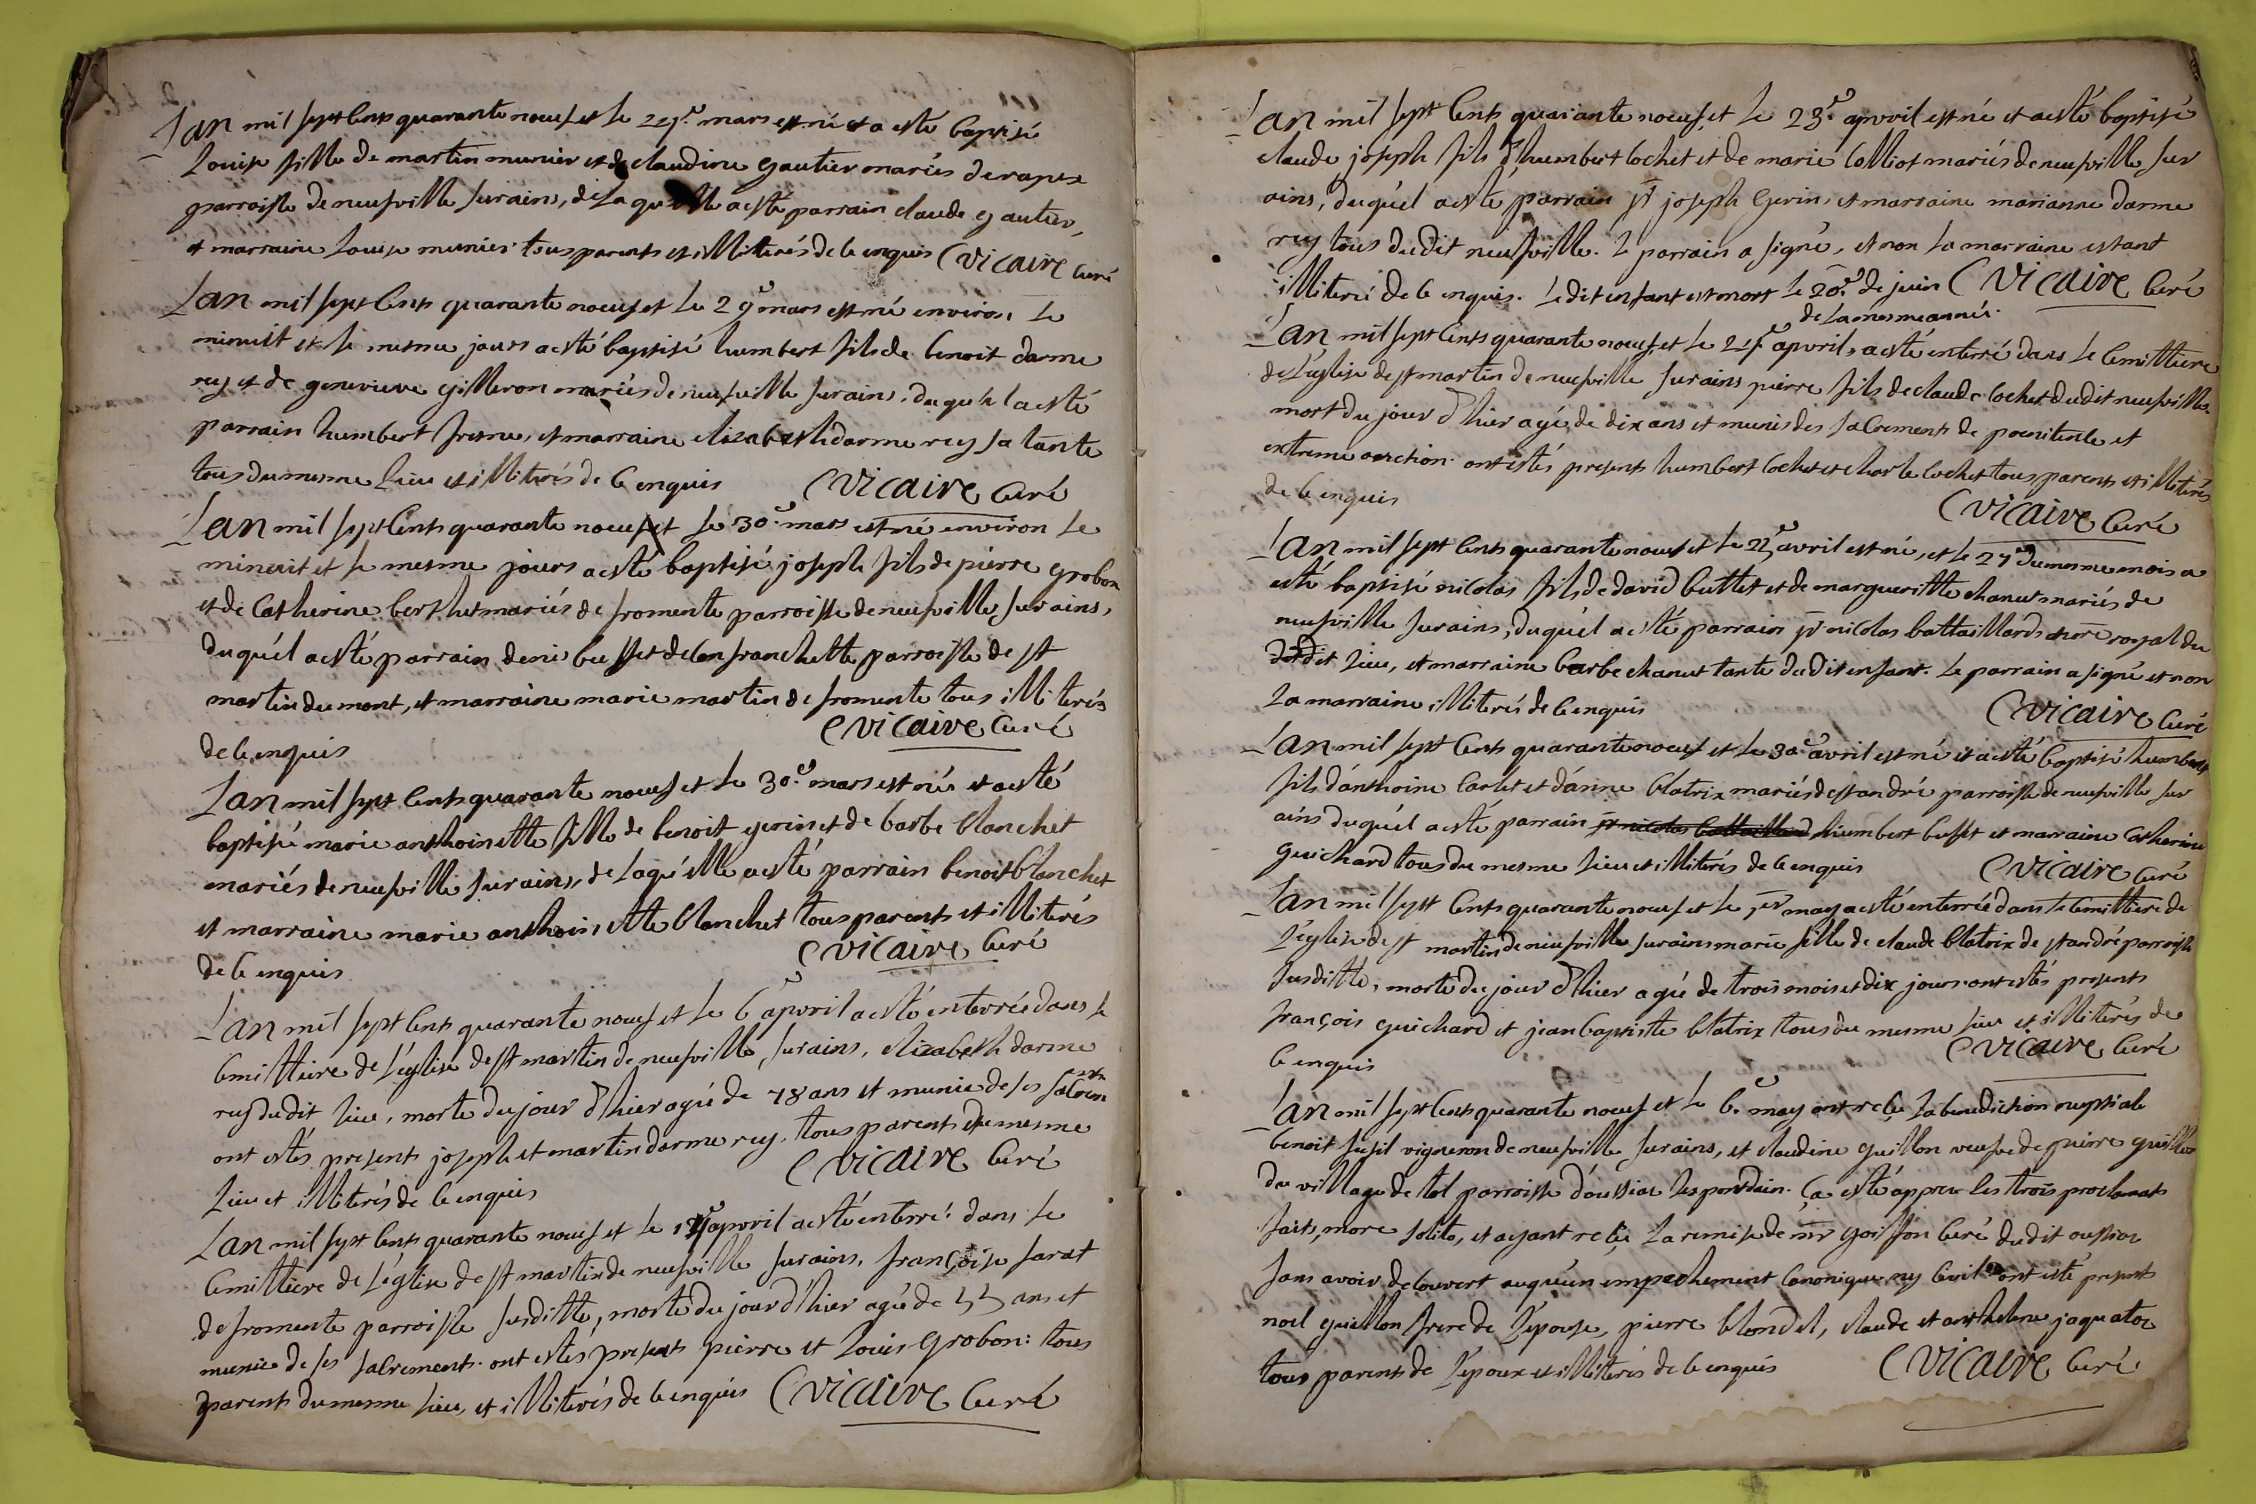 Lan mil sept Cents quarante noeuf et le mars est né et a esté baptisé
Louise fille de martin munier et de claudine gautier mariés de
parroisse de neufville surains, de la quelle a esté parrain claude gautier,
et marraine Louise munier tous parents et illiterés de ce enquis Vicaire Curé
Lan mil sept Cents quarante noeuf et le 29e mars est né environ le
minuit et le mesme jours a esté baptisé humbert fils de benoit darme
rey et de genevieve gilleron mariés de neufville surains, duquel a esté
parrain humbert fresne, et marraine elizabeth darme rey sa tante
tous du mesme Lieu et illiterés de ce enquis Vicaire Curé
Lan mil sept Cents quarante noeuf et le 30e mars est né environ le
minuit et le mesme jours a esté baptisé joseph fils de pierre grobon
et de Catherine berthet mariés de fromente parroisse de neufville surains,
duquél a esté parrain denis buffet de franchette parroisse de st
martin du mont, et marraine marie martin de fromente tous illiterés
de ce enquis Vicaire Curé
Lan mil sept Cents quarante noeuf et le 30e mars est née et a esté
baptisé marie anthoinette fille de benoit gerin et de barbe blanchet
mariés de neufville surains, de laquélle a esté parrain benoit blanchet
et marraine marie anthoinette blanchet tous parents et illiterés
de ce enquis Vicaire Curé
Lan mil sept Cents quarante noeuf et le 6e apvril a esté enterrée dans le
Cemittiere de l'église de st martin de neufville surains, elizabeth darme
rey dudit lieu, morte du jour d'hier agée de 78 ans et munie de ses sacrem
ents
ont estés presents joseph et martin darme rey, tous parents du mesme
lieu et illiterés de ce enquis Vicaire Curé
Lan mil sept Cents quarante noeuf et le apvril a esté enterré dans le
Cemittiere de l'église de st martin de neufville surains, françoise sarat
de fromente parroisse susditte, morte du jour d'hier agée de 55 ans et
munie de ses sacrements. ont estés presents pierre et Louis grobon: tous
parents du mesme lieu, et illiterés de ce enquis Vicaire Curé
Lan mil sept Cents quarante noeuf, et Le 23e apvril est né et a esté baptisé
claude joseph fils d'humbert cochet et de marie Colliot mariés de neufville sur
ains, duquél a esté parrain sr joseph Gerin, et marraine marianne darme
rey tous dudit neufville. Le parrain a signé, et non la marraine estant
illiteré de ce enquis. Ledit enfant est mort le 20e de juin Vicaire Curé
de la mesme année.
Lan mil sept Cents quarante noeuf, et le apvril, a esté enterré dans le Cemittiere
de l'église de st martin de neufville surains pierre fils de claude cochet dudit neufville
mort du jour d'hier agé de dix ans et munis des sacrements de poenitence et
extreme onction. ont estés presents humbert cochet et charle cochet tous parents et illiterés
de ce enquis Vicaire Curé
Lan mil sept Cents quarante noeuf et le avril est né, et le 27e du mesme mois a
esté baptisé nicolas fils de david buttet et de margueritte chanut mariés de
neufville surains, duquél a esté parrain sr nicolas battaillard nore royal du
dit lieu, et marraine barbe chanut tante dudit enfant. Le parrain a signé et non
la marraine illiterés de ce enquis Vicaire Curé
Lan mil sept Cents quarante noeuf et le 30e avril est né et a esté baptisé humbert
fils d'anthoine Carlet et d'anne blatrix mariés de st andré parroisse de neufville sur
ains duquél a esté parrain sr nicolas battaillard humbert buffet et marraine Catherine
guichard tous du mesme lieu et illiterés de ce enquis Vicaire Curé
Lan mil sept Cents quarante noeuf et le 1er may a esté enterrée dans le Cemittiere de
l'église de st martin de neufville surains marie fille de claude blatrix de st andré parroisse
susditte, morte du jour d'hier agée de trois mois et dix jours. ont estés presents
françois guichard et jean baptiste blatrix tous du mesme lieu et illiterés de
ce enquis Vicaire Curé
Lan mil sept Cents quarante noeuf et le 6e may ont reçu la benediction nuptiale
benoit fusil vigneron de neufville surains, et claudine guillon veufve de pierre
du village de tol parroisse d'oussiat les pontdain. Ça esté appres les trois proclamats
faits, more solito, et ayant reçu la remise de mr goisson Curé dudit oussiat
sans avoir decouvert auquun empechement Canonique ny Civil ont esté presents
noel guillon frere de l'épouse, pierre blondel, claude et anthelme jaquatot
tous parents de l'époux et illiterés de ce enquis Vicaire Curé